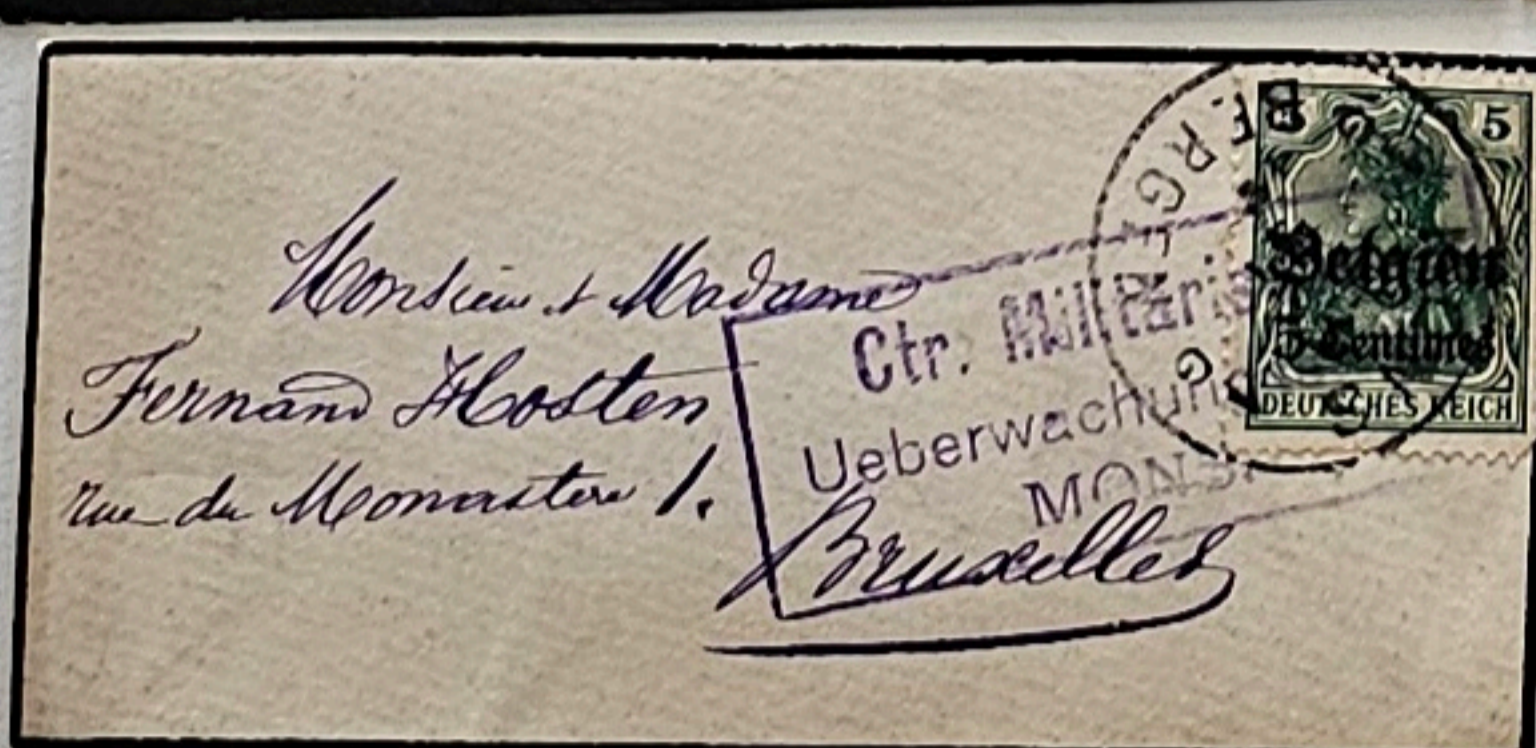 Monsieur et Madame
Fernand Hosten
rue du Monastere 1.
Bruxelles
Ctr.
Ueberwachung
MONS
BERG
5 5
Belgien
5 Centimes
DEUTSCHES REICH